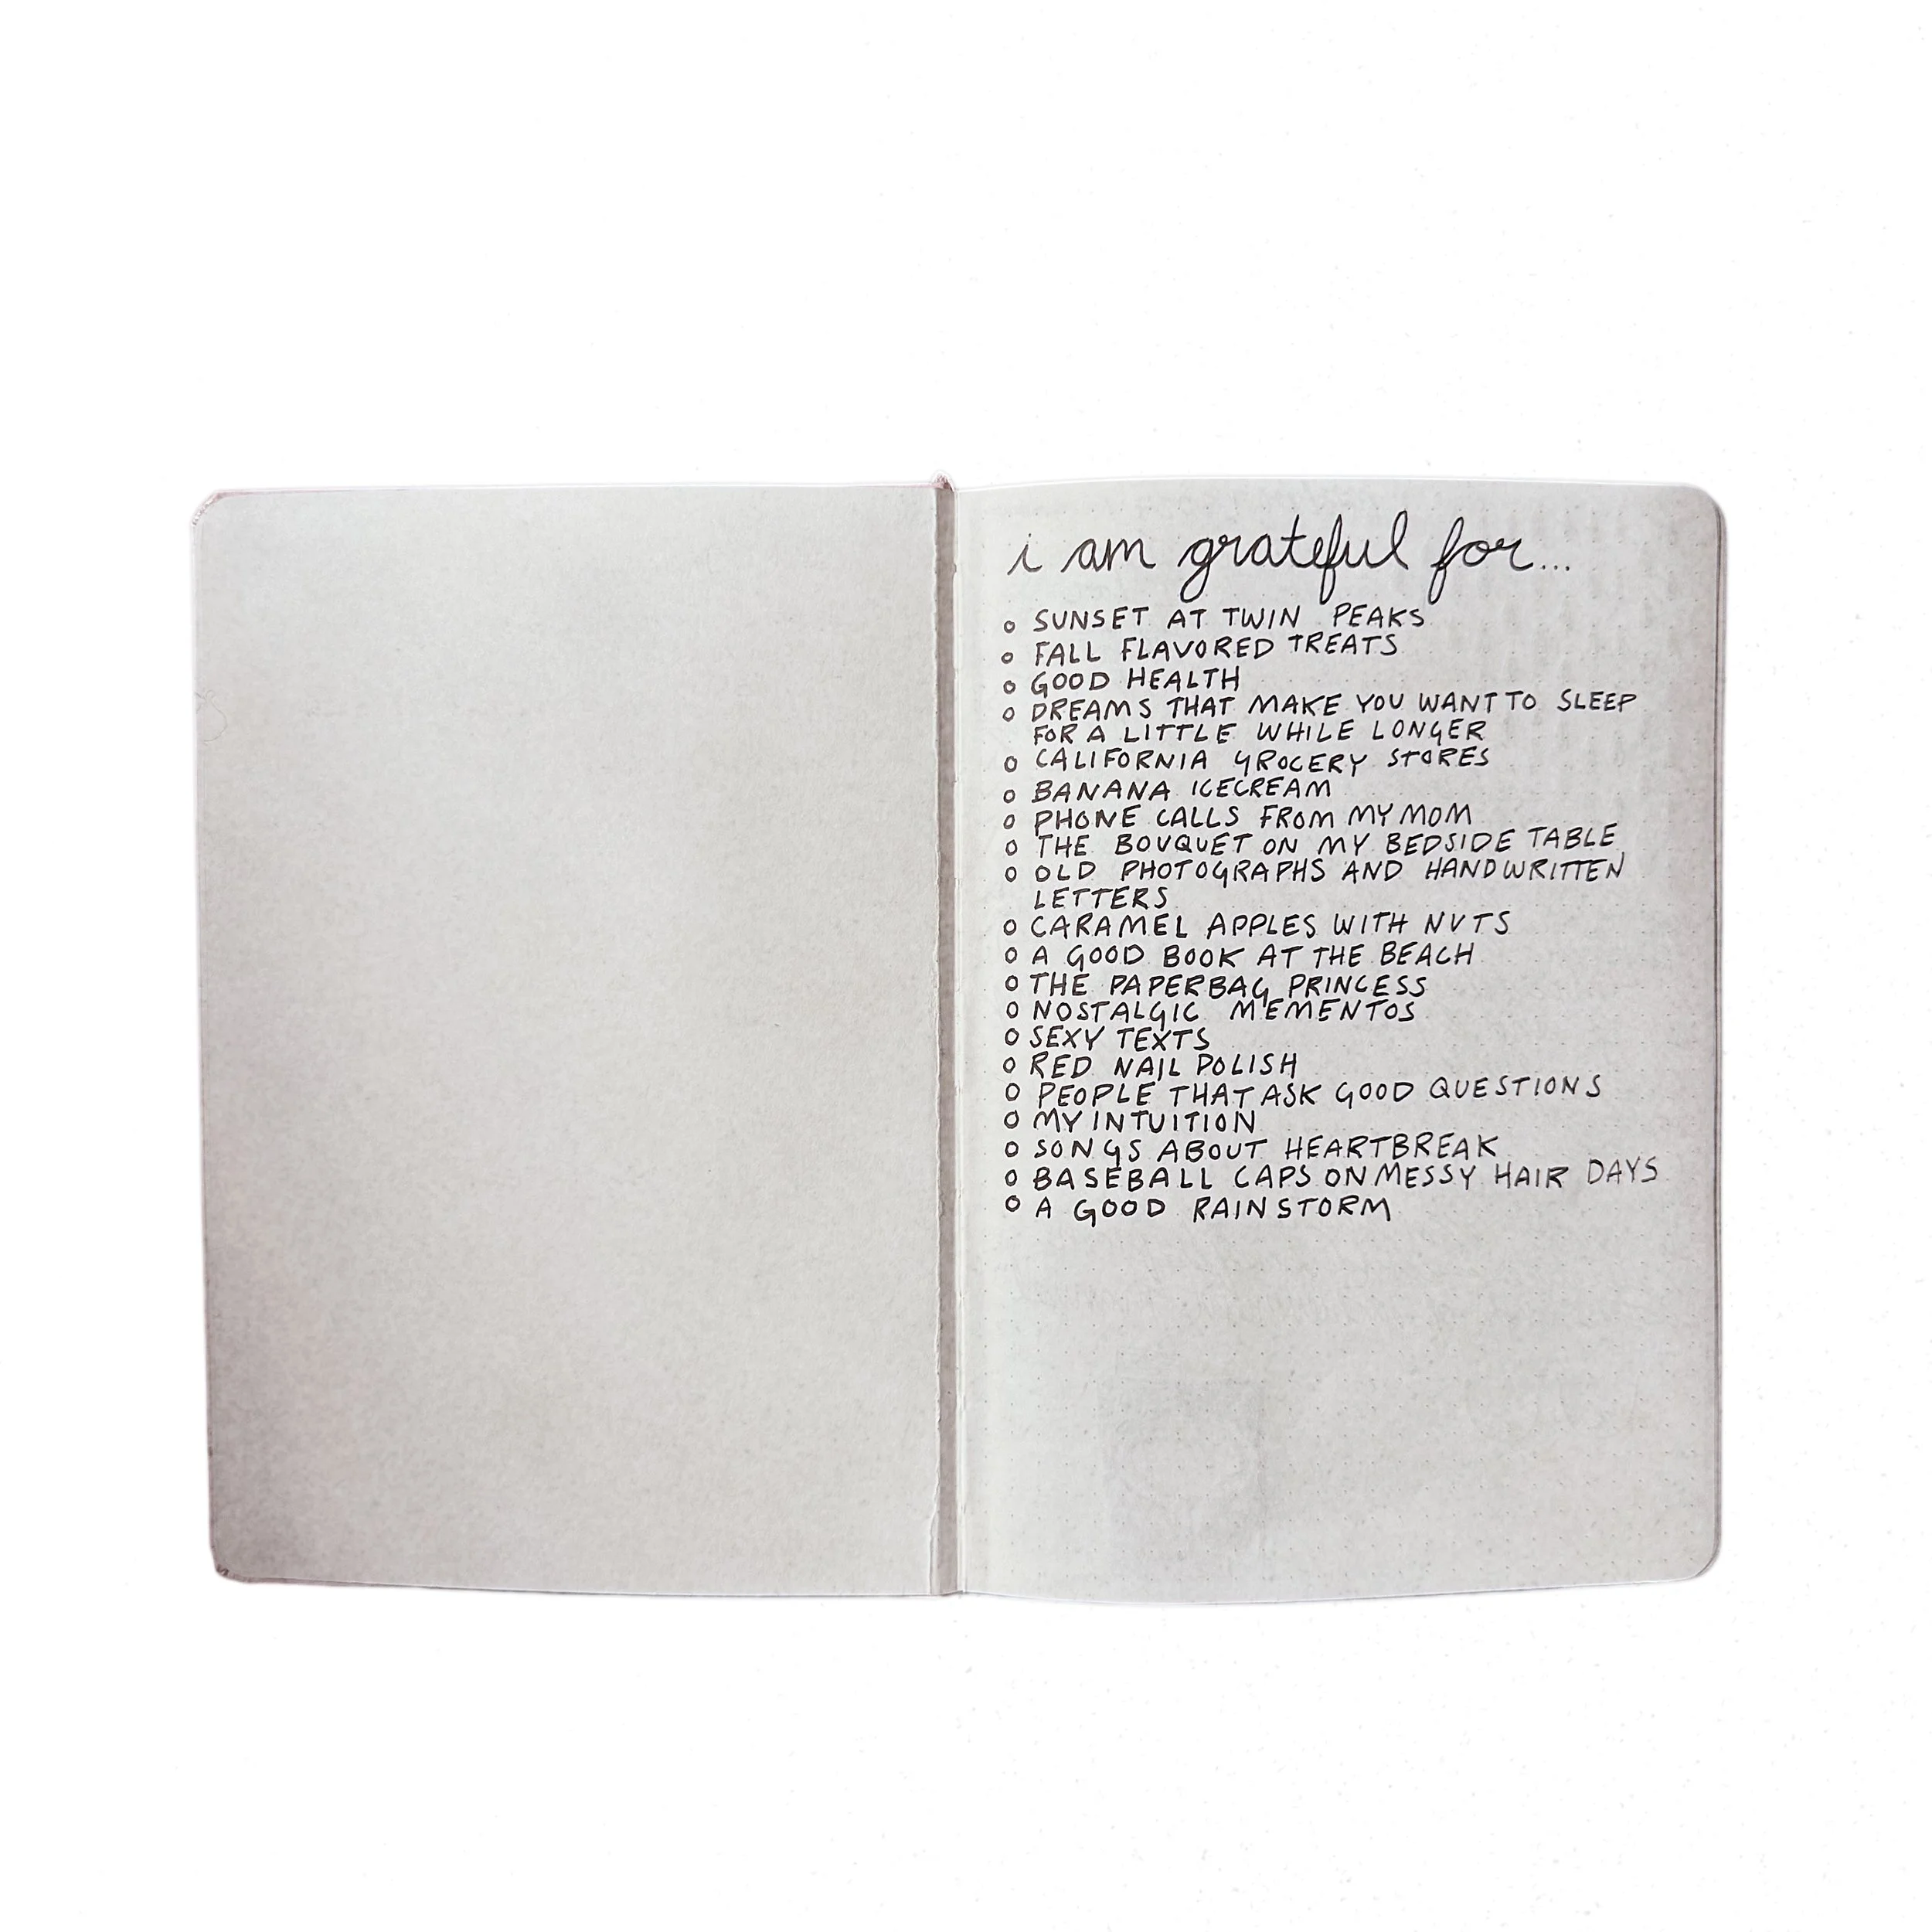 i am grateful for...
o SUNSET AT TWIN PEAKS
o FALL FLAVORED TREATS
o GOOD HEALTH
o DREAMS THAT MAKE YOU WANT TO SLEEP
FOR A LITTLE WHILE LONGER
o CALIFORNIA GROCERY STORES
o BANANA ICECREAM
o PHONE CALLS FROM MY MOM
o THE BOUQUET ON MY BEDSIDE TABLE
o OLD PHOTOGRAPHS AND HANDWRITTEN
LETTERS
o CARAMEL APPLES WITH NUTS
o A GOOD BOOK AT THE BEACH
o THE PAPERBAG PRINCESS
o NOSTALGIC MEMENTOS
o SEXY TEXTS
o RED NAIL POLISH
o PEOPLE THAT ASK GOOD QUESTIONS
o MY INTUITION
o SONGS ABOUT HEARTBREAK
o BASEBALL CAPS ON MESSY HAIR DAYS
o A GOOD RAINSTORM